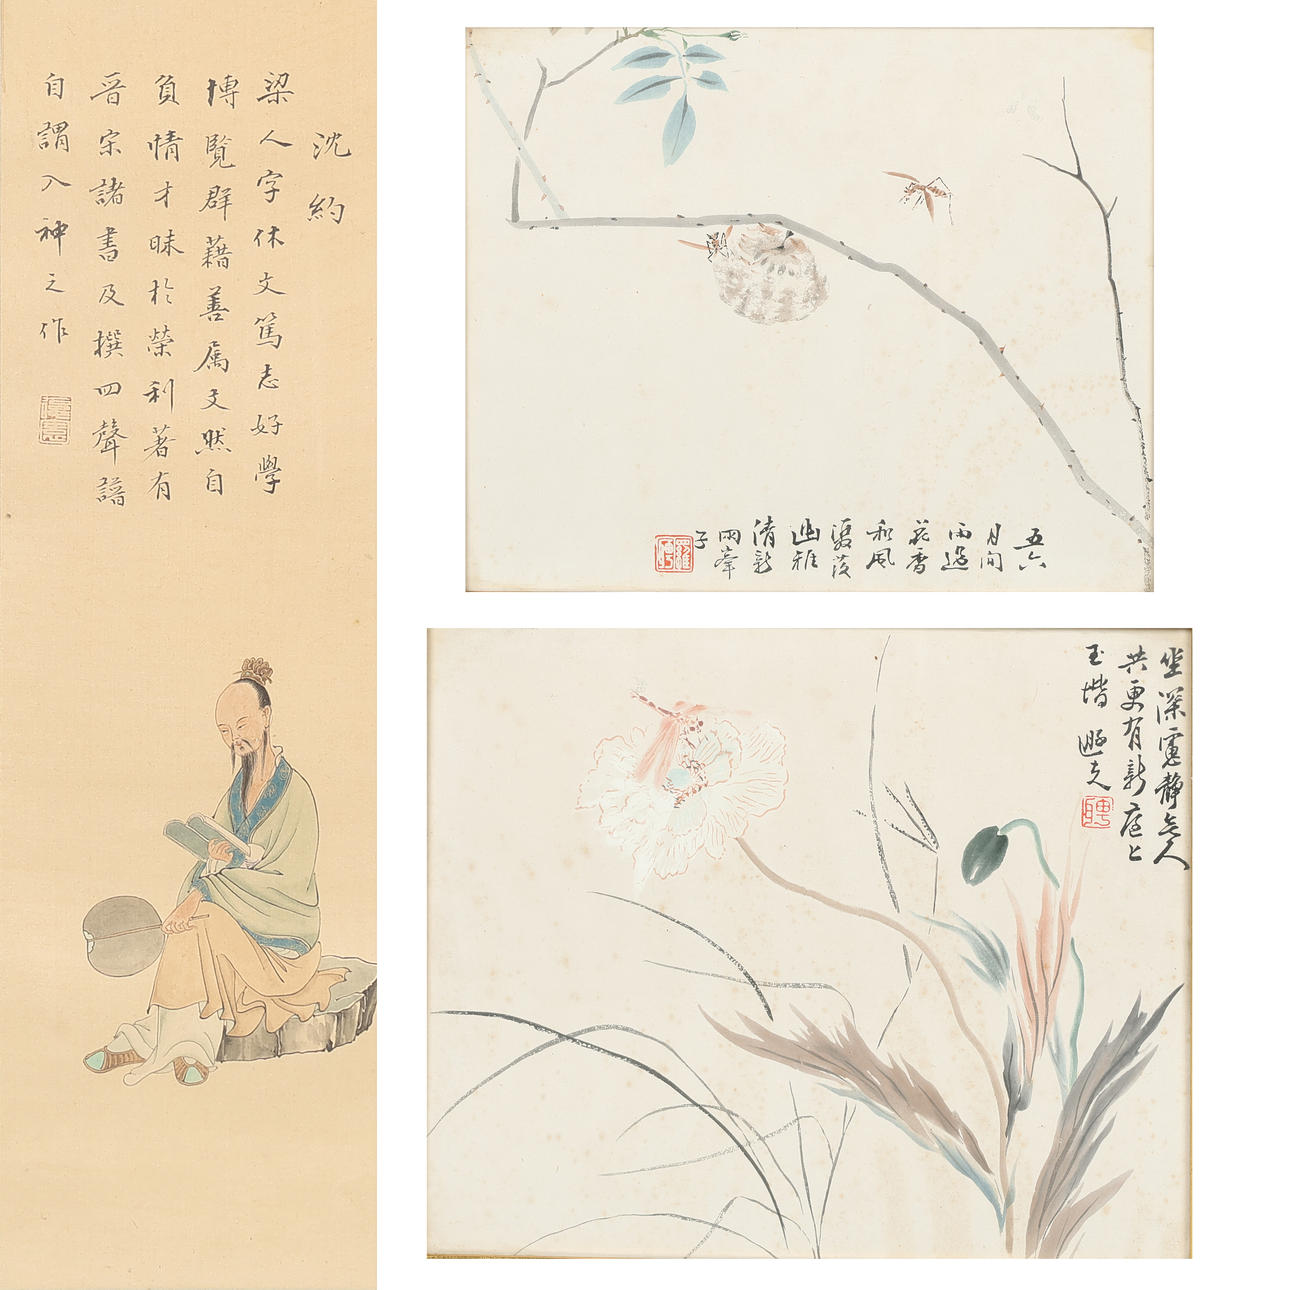 沈約
梁人字休文篤志好學
博覧群藉善属文然自
負情才昧於榮利著有
晉宋諸書及撰四聲譜
自謂入神之作
五六
月间
雨過
花香
和風
幽雅
清新
兩峯
子
坐深憲靜無人
共更有新
玉堦